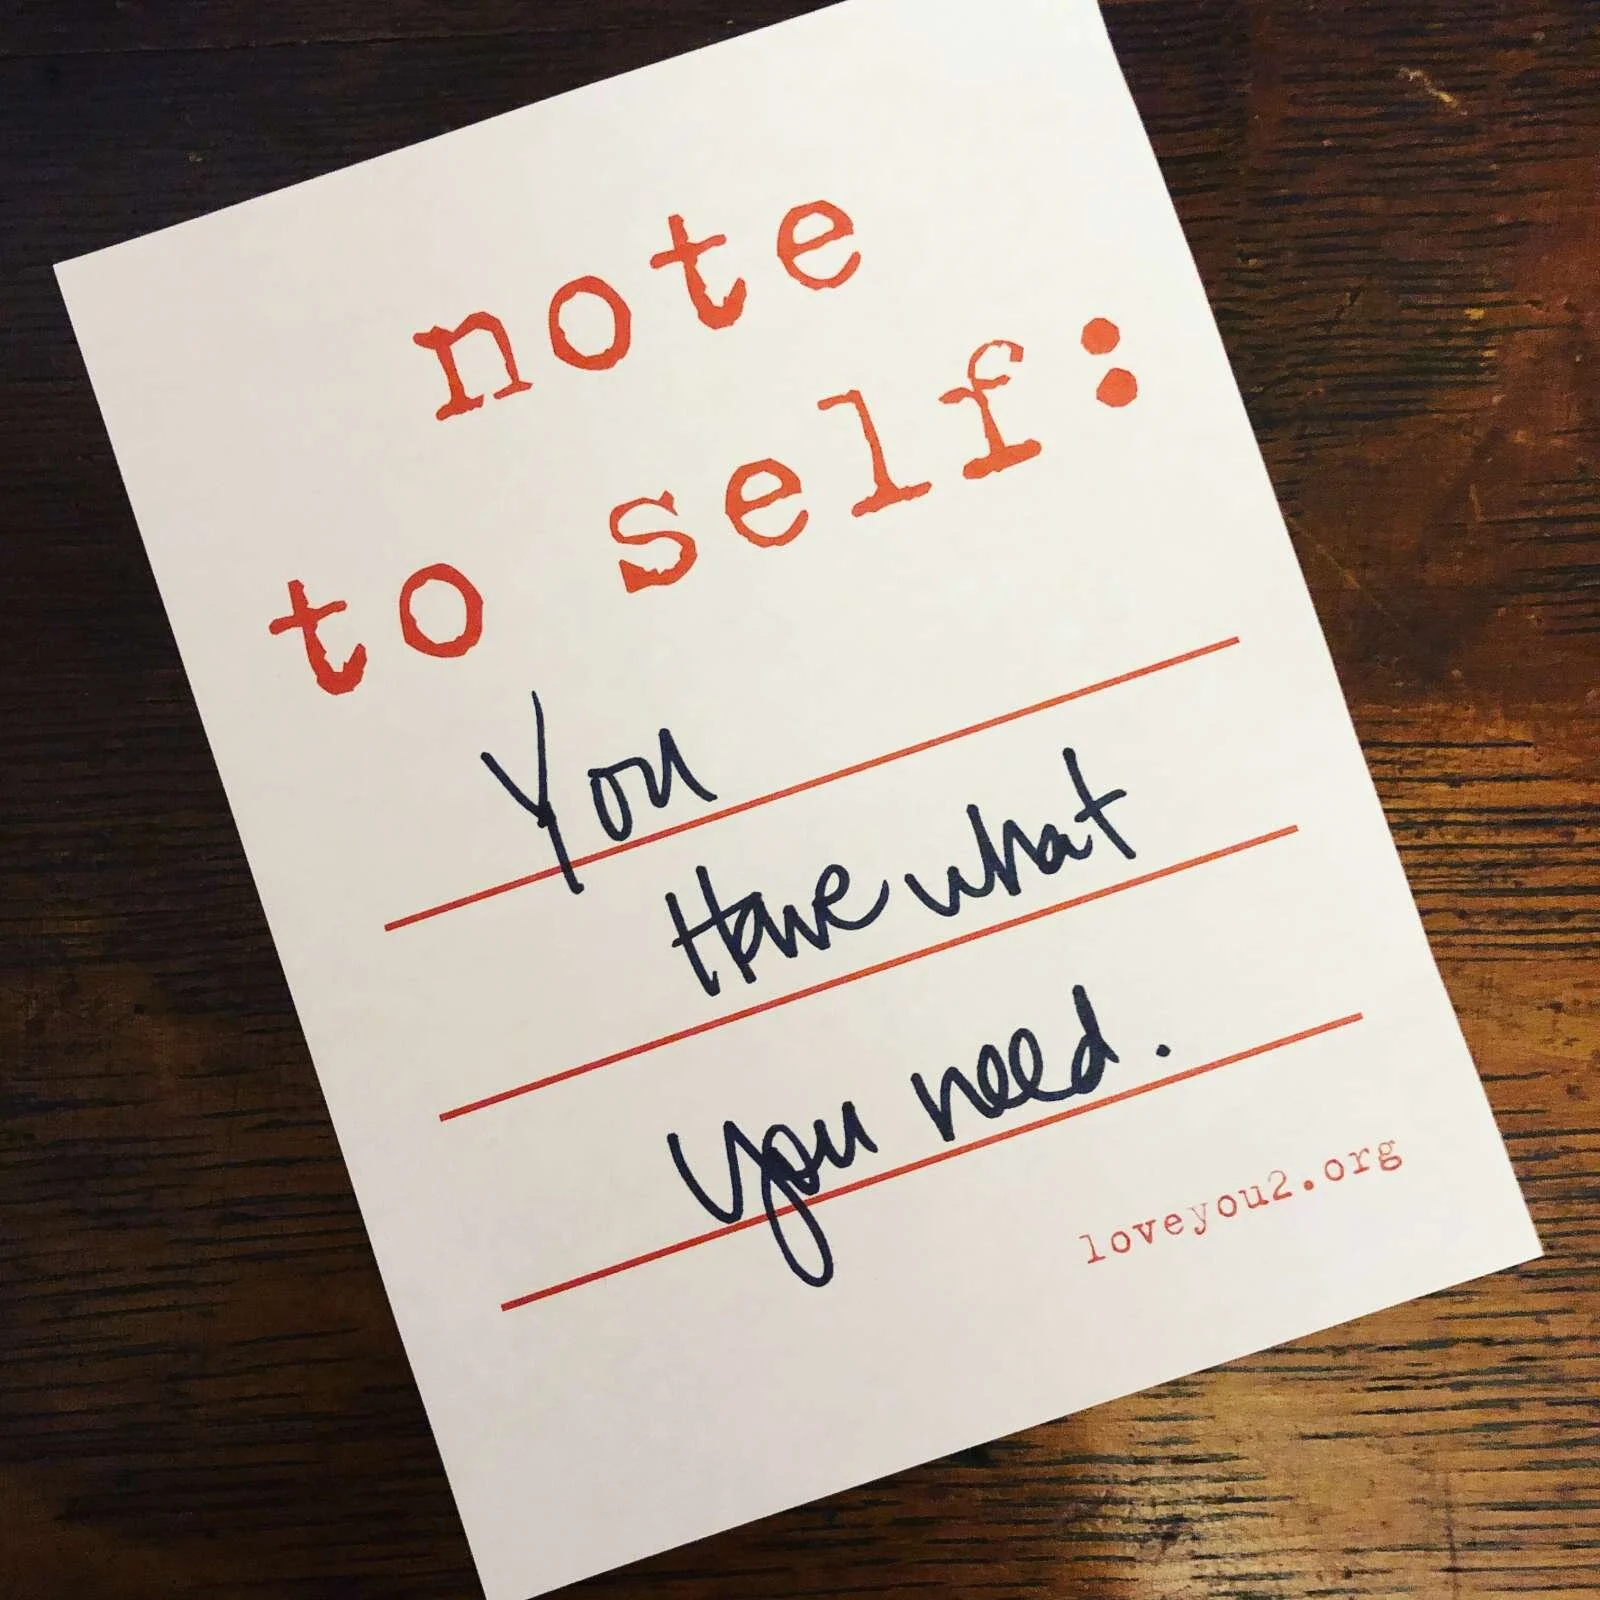 note
to self:
You
Have what
you need.
loveyou2.org